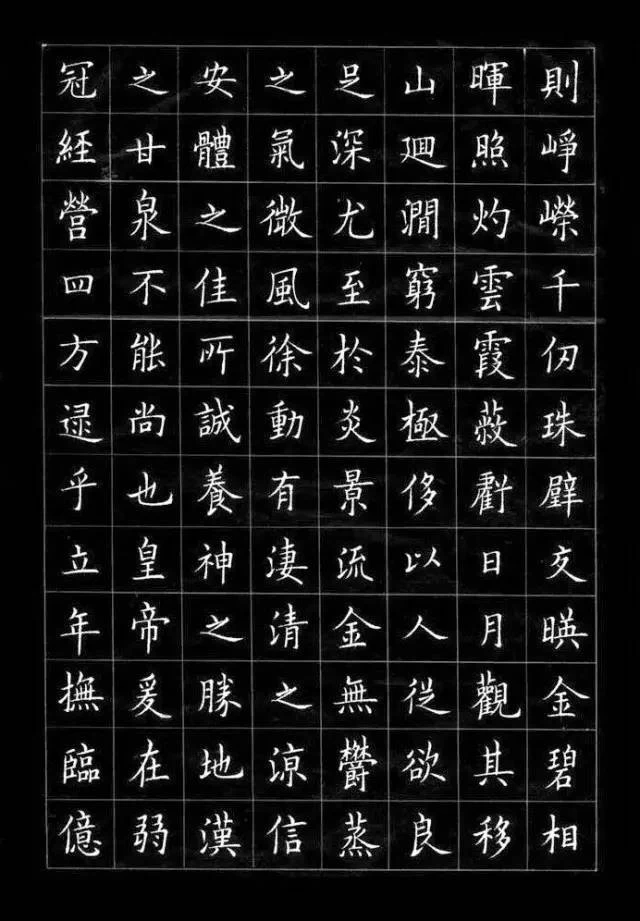 則崢嶸千仞珠壁交暎金碧相
暉照灼雲霞蔽虧日月觀其移
山迴澗窮泰極侈以人從欲良
足深尤至於炎景流金無欝蒸
之氣微風徐動有淒清之涼信
安體之佳所誠養神之勝地漢
之甘泉不能尚也皇帝爰在弱
冠經營四方逮乎立年撫臨億